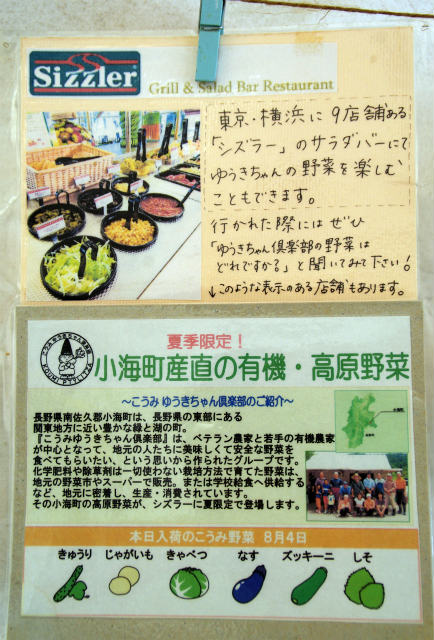 Sizzler
Grill & Salad Bar Restaurant
東京・横浜に9店舗ある
「シズラー」のサラダバーにて
ゆうきちゃんの野菜を楽しむ
こともできます。
行かれた際にはぜひ
「ゆうきちゃん倶楽部の野菜は
どれですか?」と聞いてみて下さい!
↓このような表示のある店舗もあります。
夏季限定!
小海町産直の有機・高原野菜
～こうみ ゆうきちゃん倶楽部のご紹介～
長野県南佐久郡小海町は、長野県の東部にある
関東地方に近い豊かな緑と湖の町。
『こうみゆうきちゃん倶楽部』は、ベテラン農家と若手の有機農家
が中心となって、地元の人たちに美味しくて安全な野菜を
食べてもらいたい、という思いから作られたグループです。
化学肥料や除草剤は一切使わない栽培方法で育てた野菜は、
地元の野菜市やスーパーで販売。または学校給食へ供給する
など、地元に密着し、生産・消費されています。
その小海町の高原野菜が、シズラーに夏限定で登場します。
本日入荷のこうみ野菜 8月4日
きゅうり じゃがいも きゃべつ なす ズッキーニ しそ